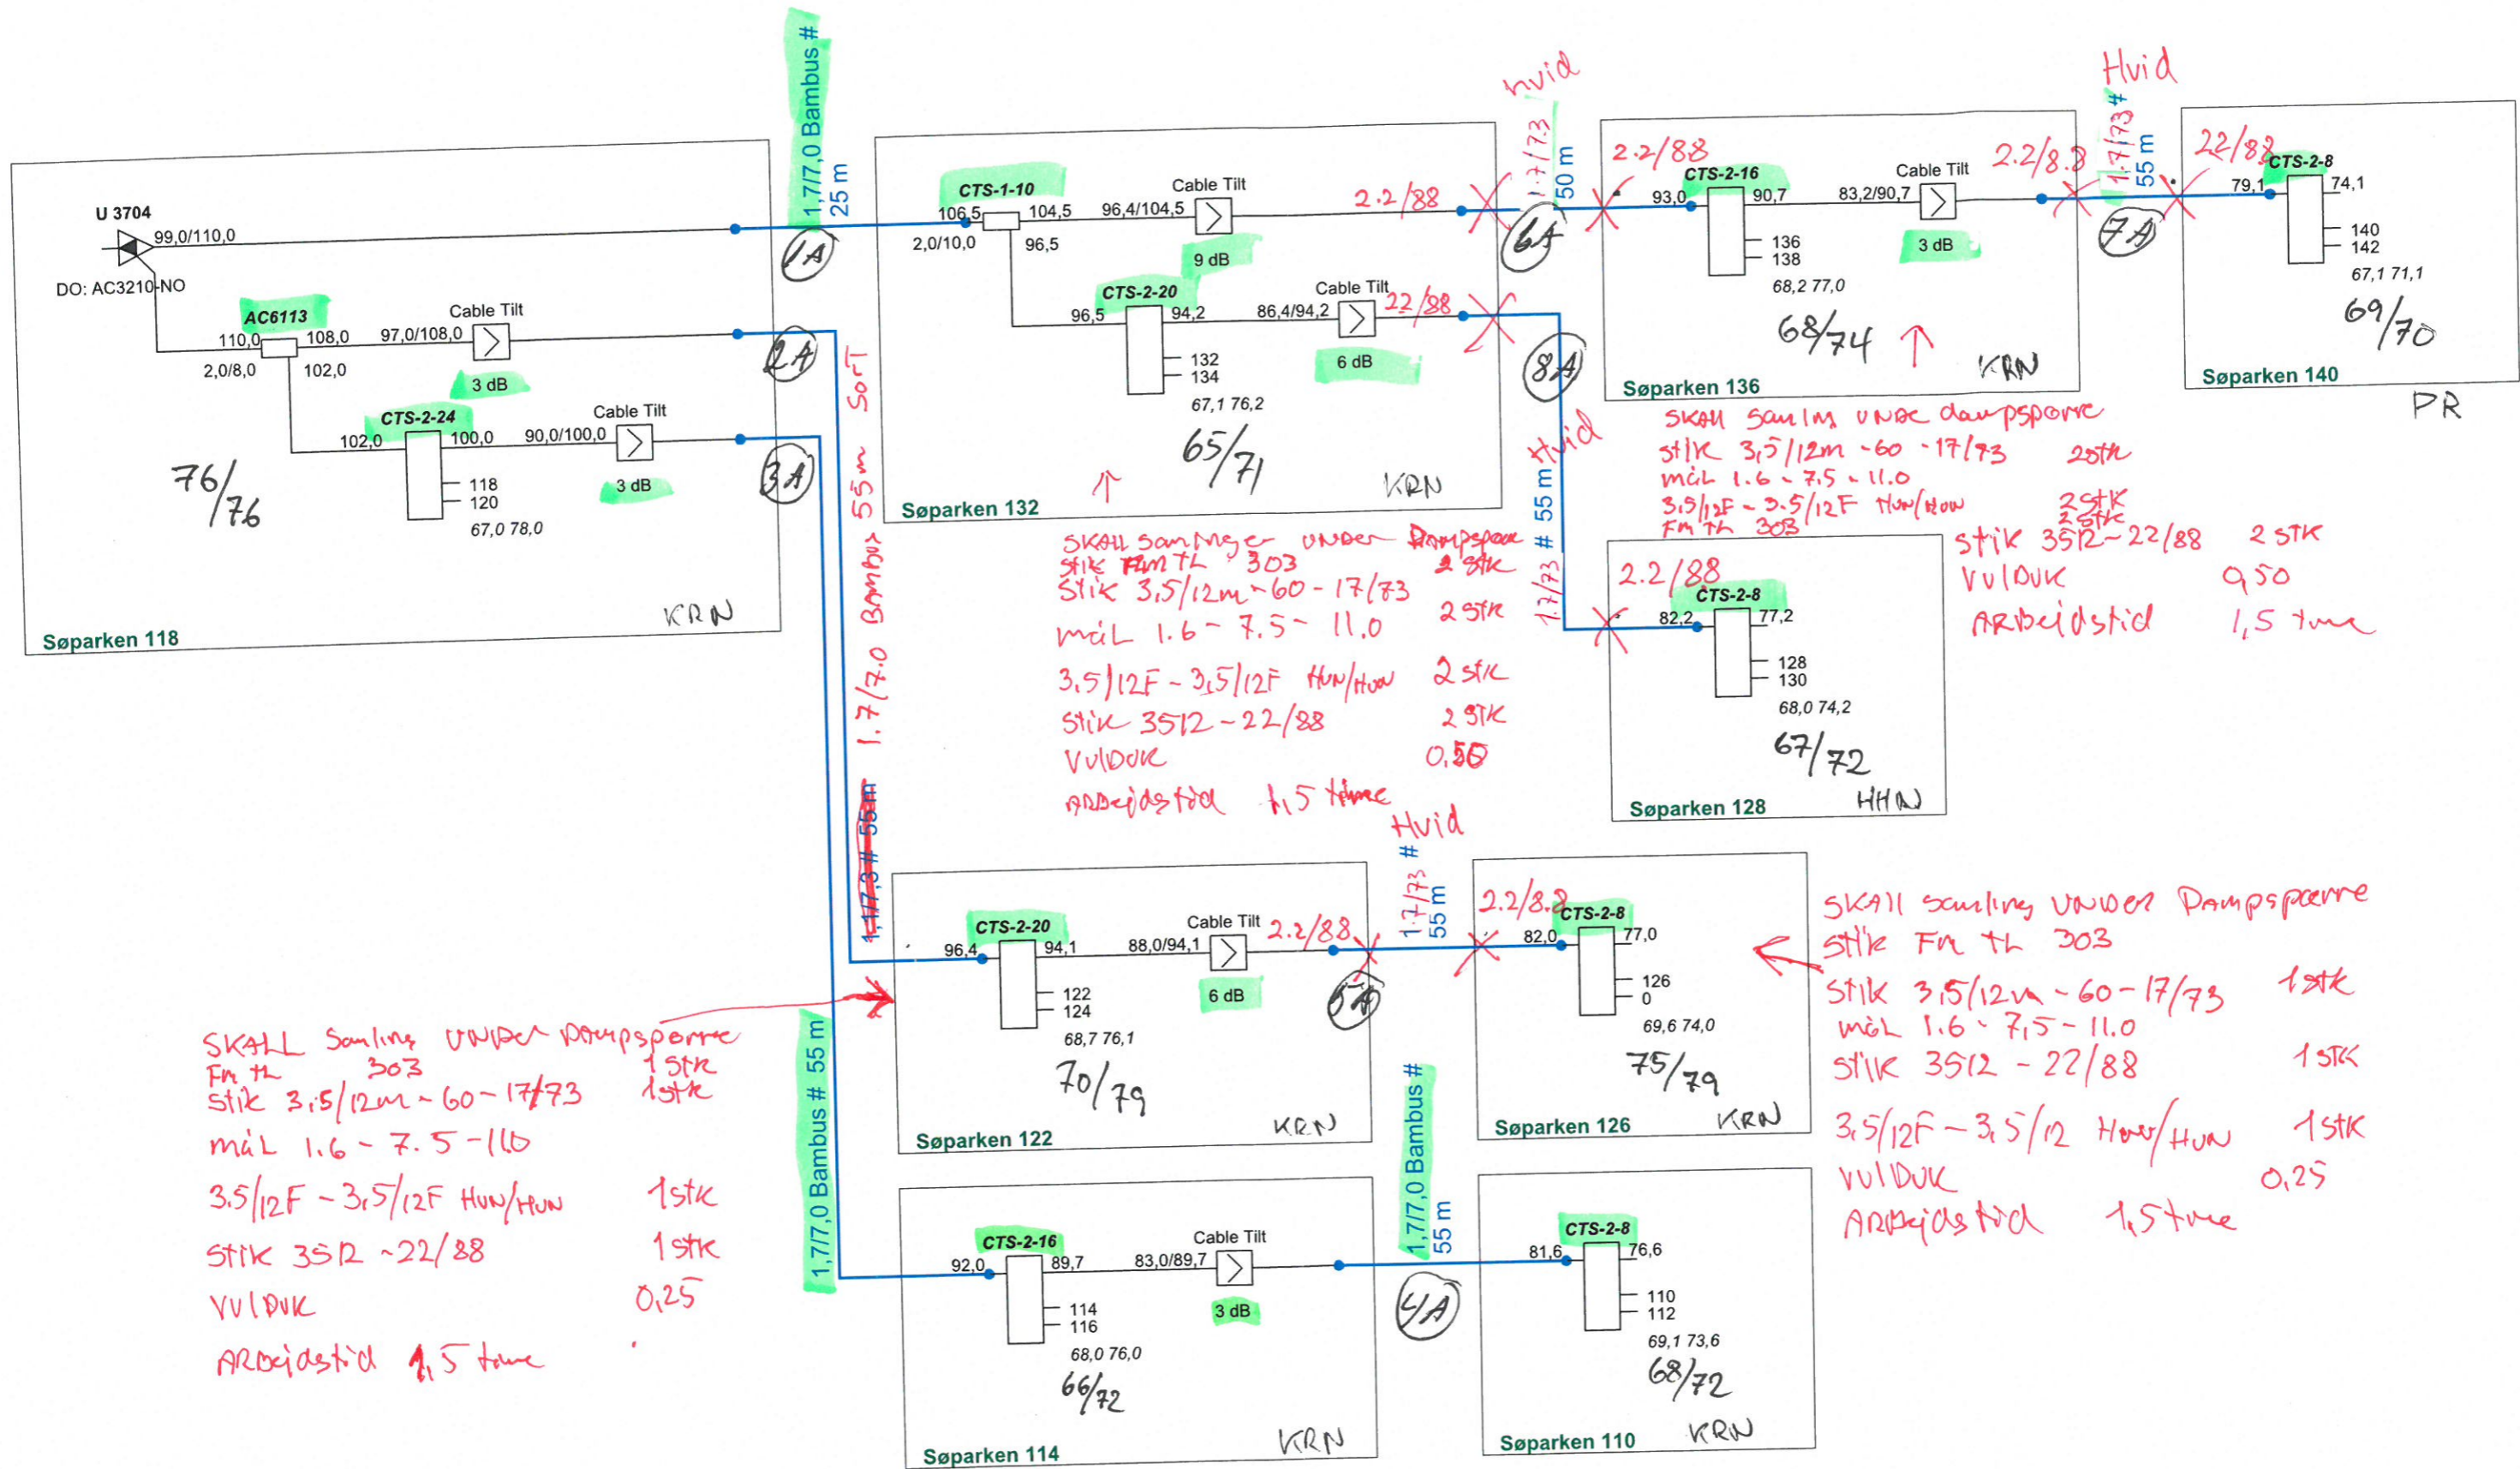 U 3704
99,0/110,0
DO: AC3210-NO
AC6113
110,0
108,0
2,0/8,0
102,0
97,0/108,0
Cable Tilt
3 dB
CTS-2-24
102,0
100,0
90,0/100,0
Cable Tilt
3 dB
118
120
67,0 78,0
76/76
KRN
Søparken 118
1,7/7,0 Bambus #
25 m
1A
2A
3A
CTS-1-10
106,5
104,5
2,0/10,0
96,5
96,4/104,5
Cable Tilt
9 dB
2.2/88
CTS-2-20
96,5
94,2
86,4/94,2
Cable Tilt
6 dB
22/88
132
134
67,1 76,2
65/71
KRN
Søparken 132
hvid
1.7/7.3
50 m
6A
8A
2.2/88
CTS-2-16
93,0
90,7
83,2/90,7
Cable Tilt
3 dB
2.2/8.8
136
138
68,2 77,0
68/74
KRN
Søparken 136
Hvid
1.7/73 #
55 m
7A
22/88
CTS-2-8
79,1
74,1
140
142
67,1 71,1
69/70
Søparken 140
PR
SKALL Samling UNDE dampsparre
stik 3,5/12m - 60 - 17/73 2stk
mål 1.6 - 7.5 - 11.0
3.5/12F - 3.5/12F HUN/HUN 2 stk
Fm th 303 2 stk
stik 3512 - 22/88 2 STK
VulDuk 0,50
ARBejdstid 1,5 time
SKALL Samlinger UNDER Dampsparre
stik Fm TL 303 2 stk
Stik 3,5/12m - 60 - 17/73 2 stk
mål 1.6 - 7.5 - 11.0
3,5/12F - 3,5/12F HUN/HUN 2 stk
Stik 3512 - 22/88 2 STK
VulDUK 0,50
ARBejdstid 1,5 time
Hvid
1.7/73 # 55 m
2.2/88
CTS-2-8
82,2
77,2
128
130
68,0 74,2
67/72
HHN
Søparken 128
1.7/7.0 BAMBUS 55 m SORT
1,1/7,3 # 55 m
CTS-2-20
96,4
94,1
88,0/94,1
Cable Tilt
6 dB
2.2/88
122
124
68,7 76,1
70/79
KRN
Søparken 122
Hvid
1.7/73 #
55 m
5A
2.2/8.8
CTS-2-8
82,0
77,0
126
0
69,6 74,0
75/79
KRN
Søparken 126
SKAll samling UNDER Dampspærre
stik Fm th 303
stik 3,5/12m - 60 - 17/73 1stk
mål 1.6 - 7,5 - 11.0
stik 3512 - 22/88 1 STK
3,5/12F - 3,5/12 HUN/HUN 1 STK
VulDUK 0,25
ARBejdstid 1,5 time
SKALL Samling UNDER Dampsperre
Fm th 303 1 stk
stik 3,5/12m - 60 - 17/73 1stk
mål 1.6 - 7.5 - 110
3.5/12F - 3,5/12F HUN/HUN 1stk
stik 3512 - 22/88 1 stk
VulDUK 0,25
ARBejdstid 1,5 time
1,7/7,0 Bambus # 55 m
CTS-2-16
92,0
89,7
83,0/89,7
Cable Tilt
3 dB
114
116
68,0 76,0
66/72
KRN
Søparken 114
1,7/7,0 Bambus #
55 m
4A
CTS-2-8
81,6
76,6
110
112
69,1 73,6
68/72
KRN
Søparken 110